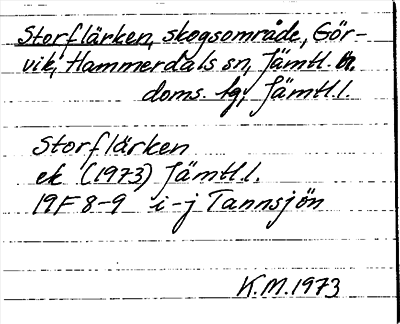 Storflärken, skogsområde, Gör-
vik, Hammerdals sn, Jämtl. n.
doms. lg, Jämtl.l.
Storflärken
ek (1973) Jämtl.l.
19F 8-9 i-j Tannsjön
K.M.1973